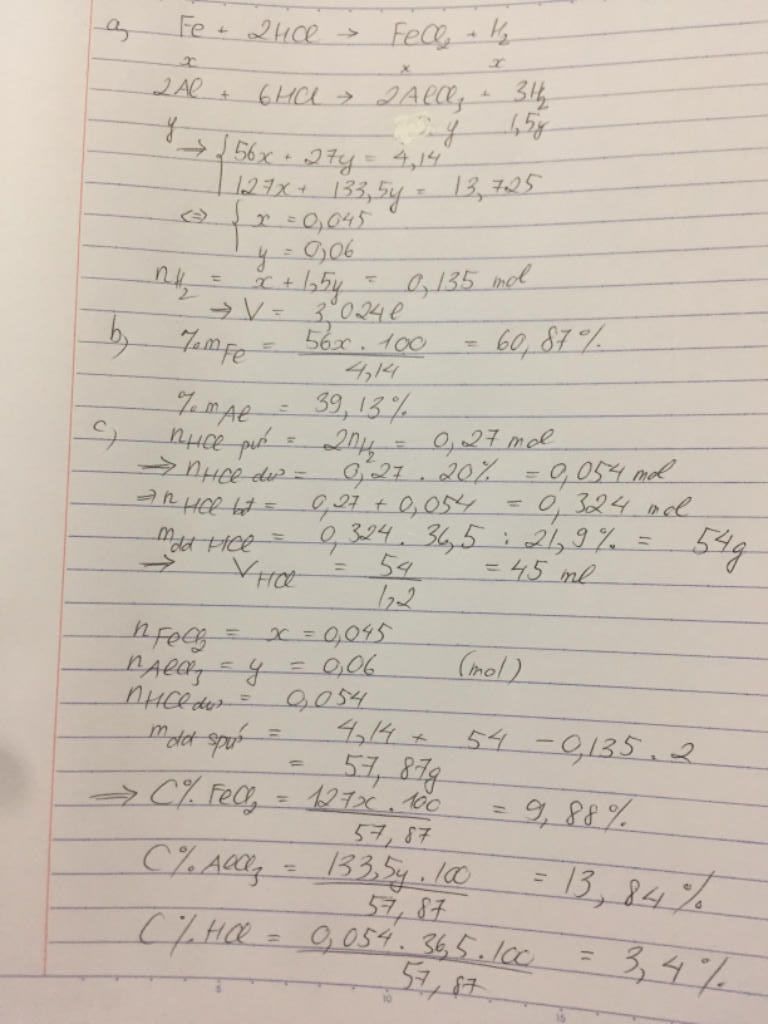 a, Fe + 2HCl → FeCl₂ + H₂
x x x
2Al + 6HCl → 2AlCl₃ + 3H₂
y y 1,5y
⇒ { 56x + 27y = 4,14
127x + 133,5y = 13,725
⇔ { x = 0,045
y = 0,06
nH₂ = x + 1,5y = 0,135 mol
→ V = 3,024l
b, %mFe = 56x . 100 / 4,14 = 60,87%
%mAl = 39,13%
c, nHCl pứ = 2nH₂ = 0,27 mol
⇒ nHCl dư = 0,27 . 20% = 0,054 mol
⇒ nHCl bđ = 0,27 + 0,054 = 0,324 mol
mdd HCl = 0,324 . 36,5 : 21,9% = 54g
⇒ VHCl = 54 / 1,2 = 45 ml
nFeCl₂ = x = 0,045
nAlCl₃ = y = 0,06 (mol)
nHCl dư = 0,054
mdd spứ = 4,14 + 54 - 0,135 . 2
= 57,87g
⇒ C% FeCl₂ = 127x . 100 / 57,87 = 9,88%
C% AlCl₃ = 133,5y . 100 / 57,87 = 13,84%
C% HCl = 0,054 . 36,5 . 100 / 57,87 = 3,4%
5 10 15